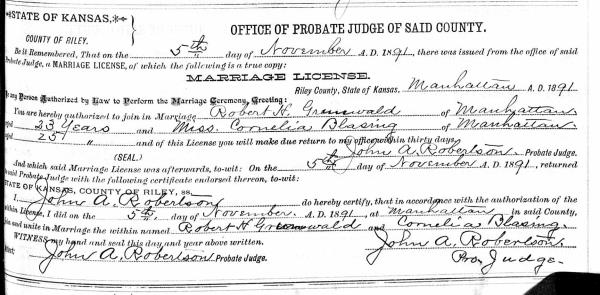 STATE OF KANSAS,
COUNTY OF RILEY.
OFFICE OF PROBATE JUDGE OF SAID COUNTY.
Be it Remembered, That on the 5th day of November A. D. 1891, there was issued from the office of said
Probate Judge, a MARRIAGE LICENSE, of which the following is a true copy:
MARRIAGE LICENSE.
Riley County, State of Kansas, Manhattan A. D. 1891
To any Person Authorized by Law to Perform the Marriage Ceremony, Greeting:
You are hereby authorized to join in Marriage Robert H. Grunwald of Manhattan
aged 23 Years and Miss. Cornelia Blasing of Manhattan
aged 25 " and of this License you will make due return to my office within thirty days.
(SEAL.) John A. Robertson Probate Judge.
And which said Marriage License was afterwards, to-wit: On the 5th day of November A. D. 1891, returned
to said Probate Judge with the following certificate endorsed thereon, to-wit:
STATE OF KANSAS, COUNTY OF RILEY, ss.
I, John A. Robertson do hereby certify, that in accordance with the authorization of the
within License, I did on the 5th day of November A. D. 1891, at Manhattan in said County,
join and unite in Marriage the within named Robert H Grunwald and Cornelia Blasing
WITNESS my hand and seal this day and year above written.
John A. Robertson
Attest: John A. Robertson Probate Judge. Pro. Judge.